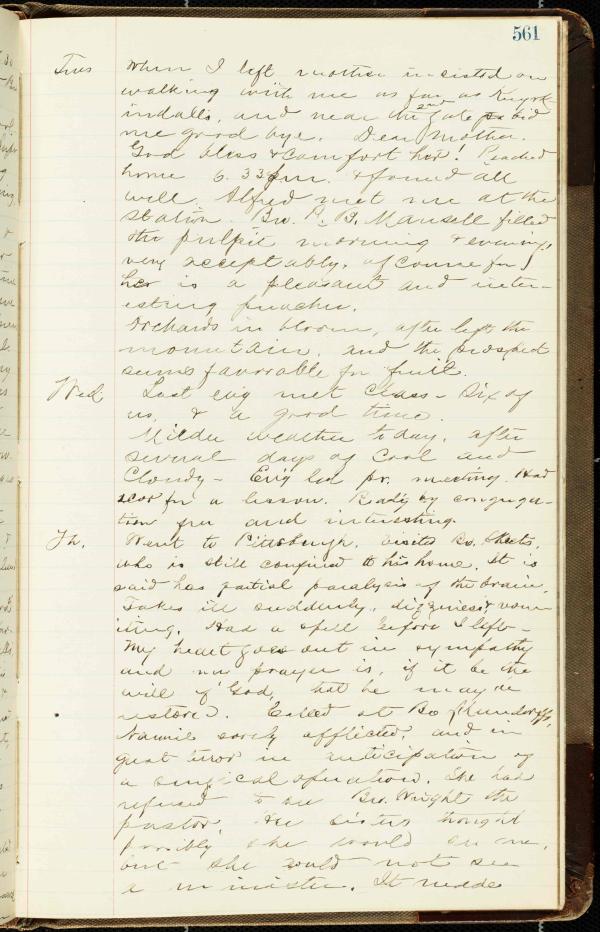 561
Tues When I left, mother insisted on
walking with me as far as Kuyk-
indalls, and near the 2nd gate bid
me good bye. Dear Mother.
God bless & comfort her! Reached
home 6.33 pm. & found all
well. Alfred met me at the
station. Bro. P. B. Mansell filled
the pulpit morning & evening,
very acceptably, of course for
he is a pleasant and inter-
esting preacher.
Orchards in bloom, after left the
mountain, and the prospect
seems favorable for fruit.
Wed Last evng met Class - Six of
us, & a good time.
Milder weather today, after
several days of cool and
cloudy - Ev'g led pr. meeting. Had
for a lesson. Read'g by congrega-
tion free and interesting.
Th. Went to Pittsburgh, visited Bro. Sheets,
who is still confined to his home. It is
said has partial paralysis of the brain.
Takes ill suddenly, dizziness & vom-
iting. Had a spell before I left -
My heart goes out in sympathy
and my prayer is, if it be the
will of God, that he may be
restored. Called at Bro
Nannie sorely afflicted, and in
great terror in anticipation of
a surgical operation. She had
refused to see Bro. Wright the
pastor. Her sisters thought
possibly she would see me,
but she would not see
a minister. It needs